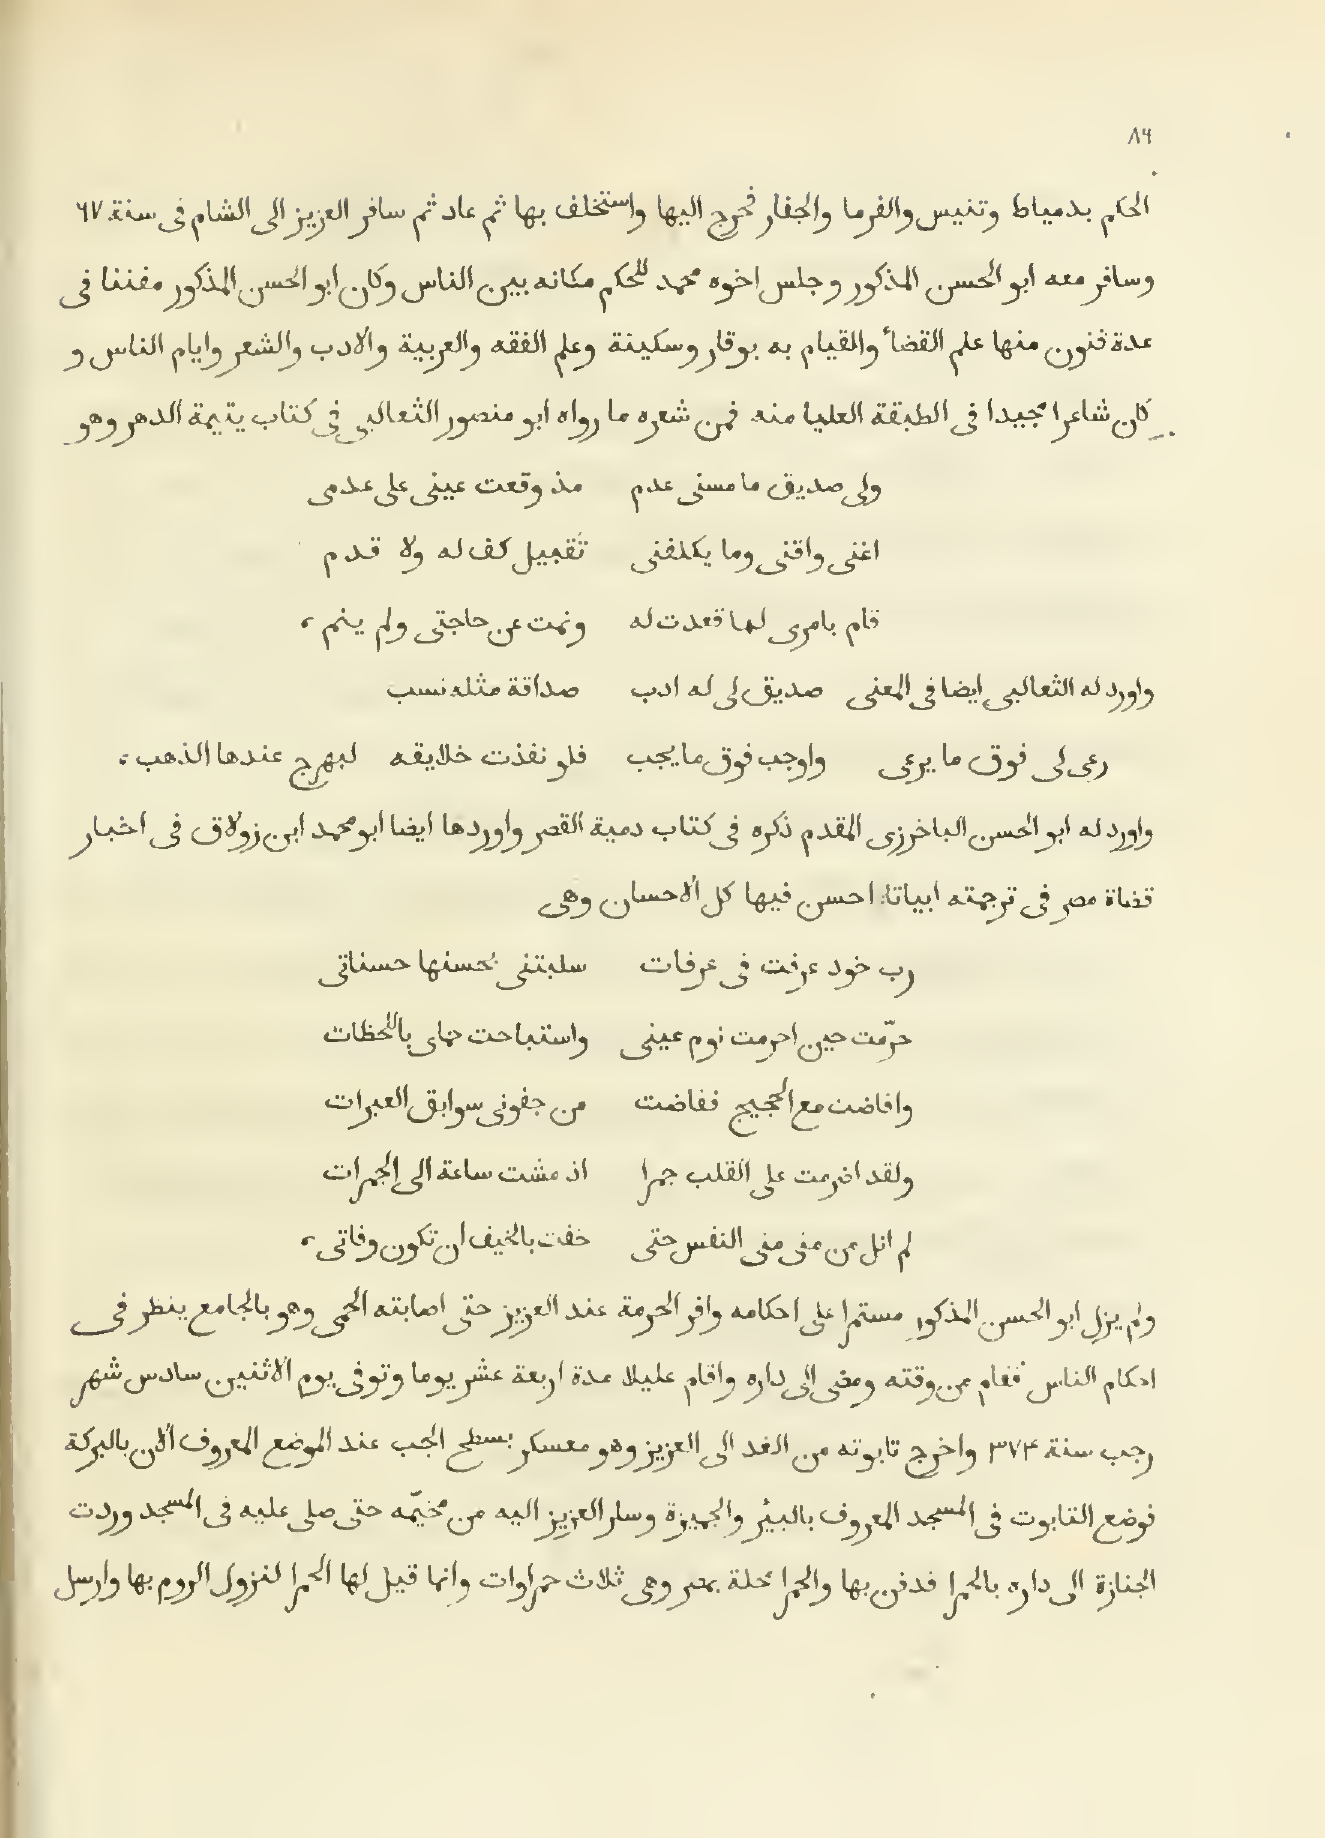 ٨٦
الحكم بدمياط وتنيس والفرما والجفار فخرج اليها واستخلف بها ثم عاد ثم سافر العزيز الى الشام فى سنة ٦٧
وسافر معه ابو الحسن المذكور وجلس اخوه محمد للحكم مكانه بين الناس وكان ابو الحسن المذكور مفننا فى
عدة فنون منها علم القضاء والقيام به بوقار وسكينة وعلم الفقه والعربية والادب والشعر وايام الناس و
كان شاعرا مجيدا فى الطبقة العليا منه فمن شعره ما رواه ابو منصور الثعالبى فى كتاب يتيمة الدهر وهو
ولى صديق ما مسنى عدم مذ وقعت عينى على عدمى
اغنى واقنى وما يكلفنى تقبيل كف له ولا قدم
قام بامرى لما قعدت له ونمت عن حاجتى ولم ينم،
واورد له الثعالبى ايضا فى المعنى صديق لى له ادب صداقة مثله نسب
رعى لى فوق ما يرعى واوجب فوق ما يجب فلو نقدت خلايقه لبهرج عندها الذهب،
واورد له ابو الحسن الباخرزى المقدم ذكره فى كتاب دمية القصر واوردها ايضا ابو محمد ابن زولاق فى اخبار
قضاة مصر فى ترجمته ابياتا احسن فيها كل الاحسان وهى
رب خود عرفت فى عرفات سلبتنى بحسنها حسناتى
حرّمت حين احرمت نوم عينى واستباحت حماى باللحظات
وافاضت مع الحجيج ففاضت من جفونى سوابق العبرات
ولقد اضرمت على القلب جمرا اذ مشت ساعة الى الجمرات
لم انل من منى منى النفس حتى خفت بالخيف ان تكون وفاتى،
ولم يزل ابو الحسن المذكور مستمرا على احكامه وافر الحرمة عند العزيز حتى اصابته الحمى وهو بالجامع ينظر فى
احكام الناس فقام من وقته ومضى الى داره واقام عليلا مدة اربعة عشر يوما وتوفى يوم الاثنين سادس شهر
رجب سنة ٣٧۴ واخرج تابوته من الغد الى العزيز وهو معسكر بسطح الجب عند الموضع المعروف الان بالبركة
فوضع التابوت فى المسجد المعروف بالبئر والجميزة وسار العزيز اليه من مخيّمه حتى صلى عليه فى المسجد وردت
الجنازة الى داره بالحمرا فدفن بها والحمرا محلة بمصر وهى ثلاث حمراوات وانما قيل لها الحمرا لنزول الروم بها وارسل